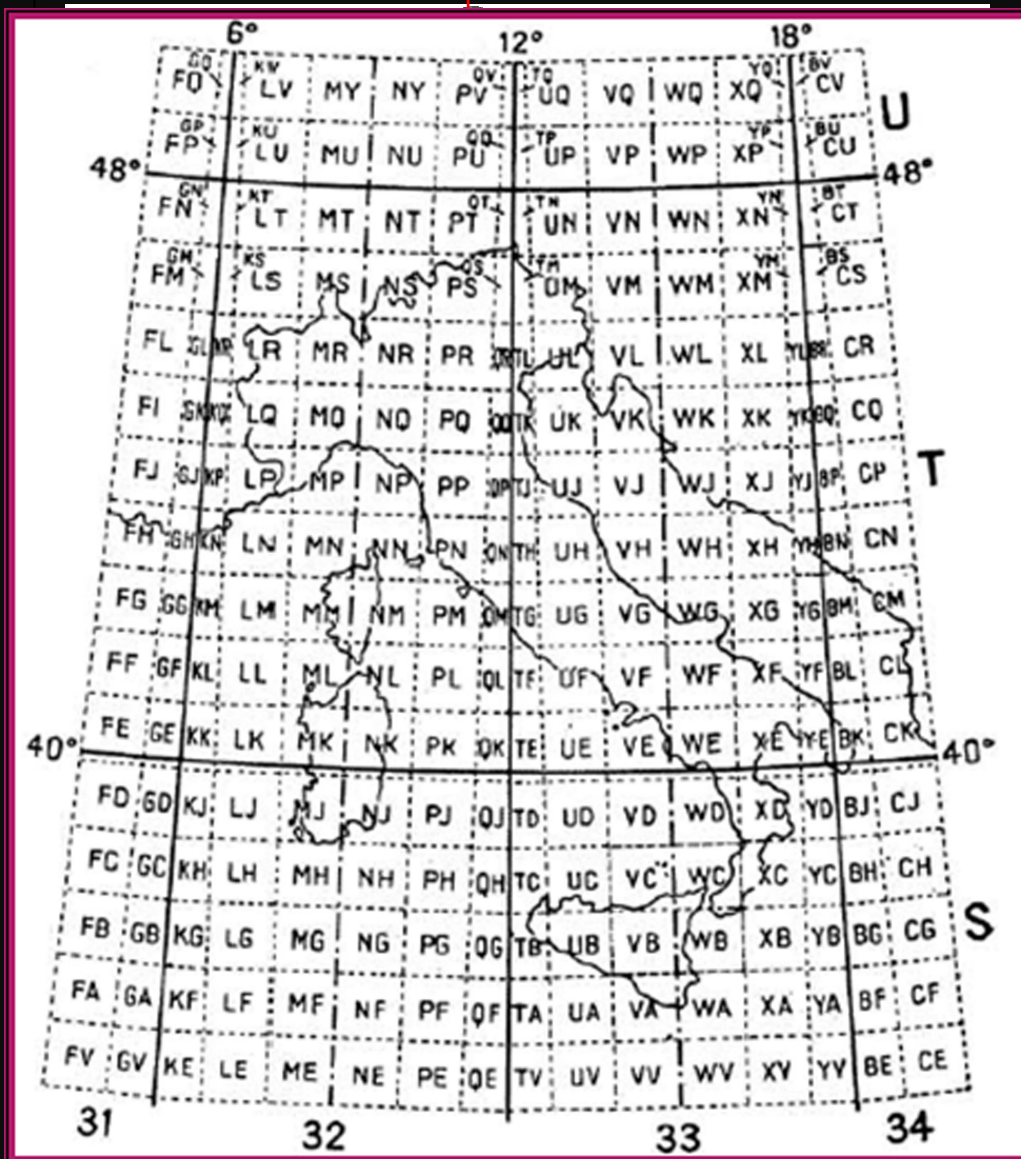 6° 12° 18°
GQ KW QV TQ YQ BV
FQ LV MY NY PV UQ VQ WQ XQ CV U
GP KU QU TP YP BU
FP LU MU NU PU UP VP WP XP CU
48° 48°
GN KT QT TN YN BT
FN LT MT NT PT UN VN WN XN CT
GM KS QS TM YM BS
FM LS MS NS PS UM VM WM XM CS
FL GL KR LR MR NR PR QR TL UL VL WL XL YL BR CR
FI GK LQ MQ NQ PQ QQ TK UK VK WK XK YK BQ CQ
FJ GJ KP LP MP NP PP QP TJ UJ VJ WJ XJ YJ BP CP T
FH GH KN LN MN NN PN QN TH UH VH WH XH YH BN CN
FG GG KM LM MM NM PM QM TG UG VG WG XG YG BM CM
FF GF KL LL ML NL PL QL TF UF VF WF XF YF BL CL
FE GE KK LK MK NK PK QK TE UE VE WE XE YE BK CK
40° 40°
FD GD KJ LJ MJ NJ PJ QJ TD UD VD WD XD YD BJ CJ
FC GC KH LH MH NH PH QH TC UC VC WC XC YC BH CH
FB GB KG LG MG NG PG QG TB UB VB WB XB YB BG CG S
FA GA KF LF MF NF PF QF TA UA VA WA XA YA BF CF
FV GV KE LE ME NE PE QE TV UV VV WV XV YV BE CE
31 32 33 34